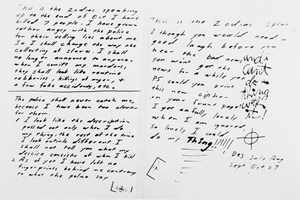 This is the Zodiac speaking
up to the end of Oct I have
killed 7 people. I have grown
rather angry with the police
for their telling lies about me.
So I shall change the way the
collecting of slaves. I shall
no longer announce to anyone.
when I comitt my murders,
they shall look like routine
robberies, killings of anger, + a
few fake accidents, etc.
The police shall never catch me,
because I have been too clever
for them.
1 I look like the description
passed out only when I do
my thing, the rest of the time
I look entirle different. I
shall not tell you what my
descise consists of when I kill
2 As of yet I have left no
fingerprints behind me contrary
to what the police say
This is the Zodiac speaking
I though you would need a
good laugh before you
hear the bad news
you won't get the
news for a while yet
PS could you print
this new cipher
on your front page?
I get awfully lonely
when I am ignored,
so lonely I could
do my Thing!!!!!!
Des July Aug
Sept Oct = 7